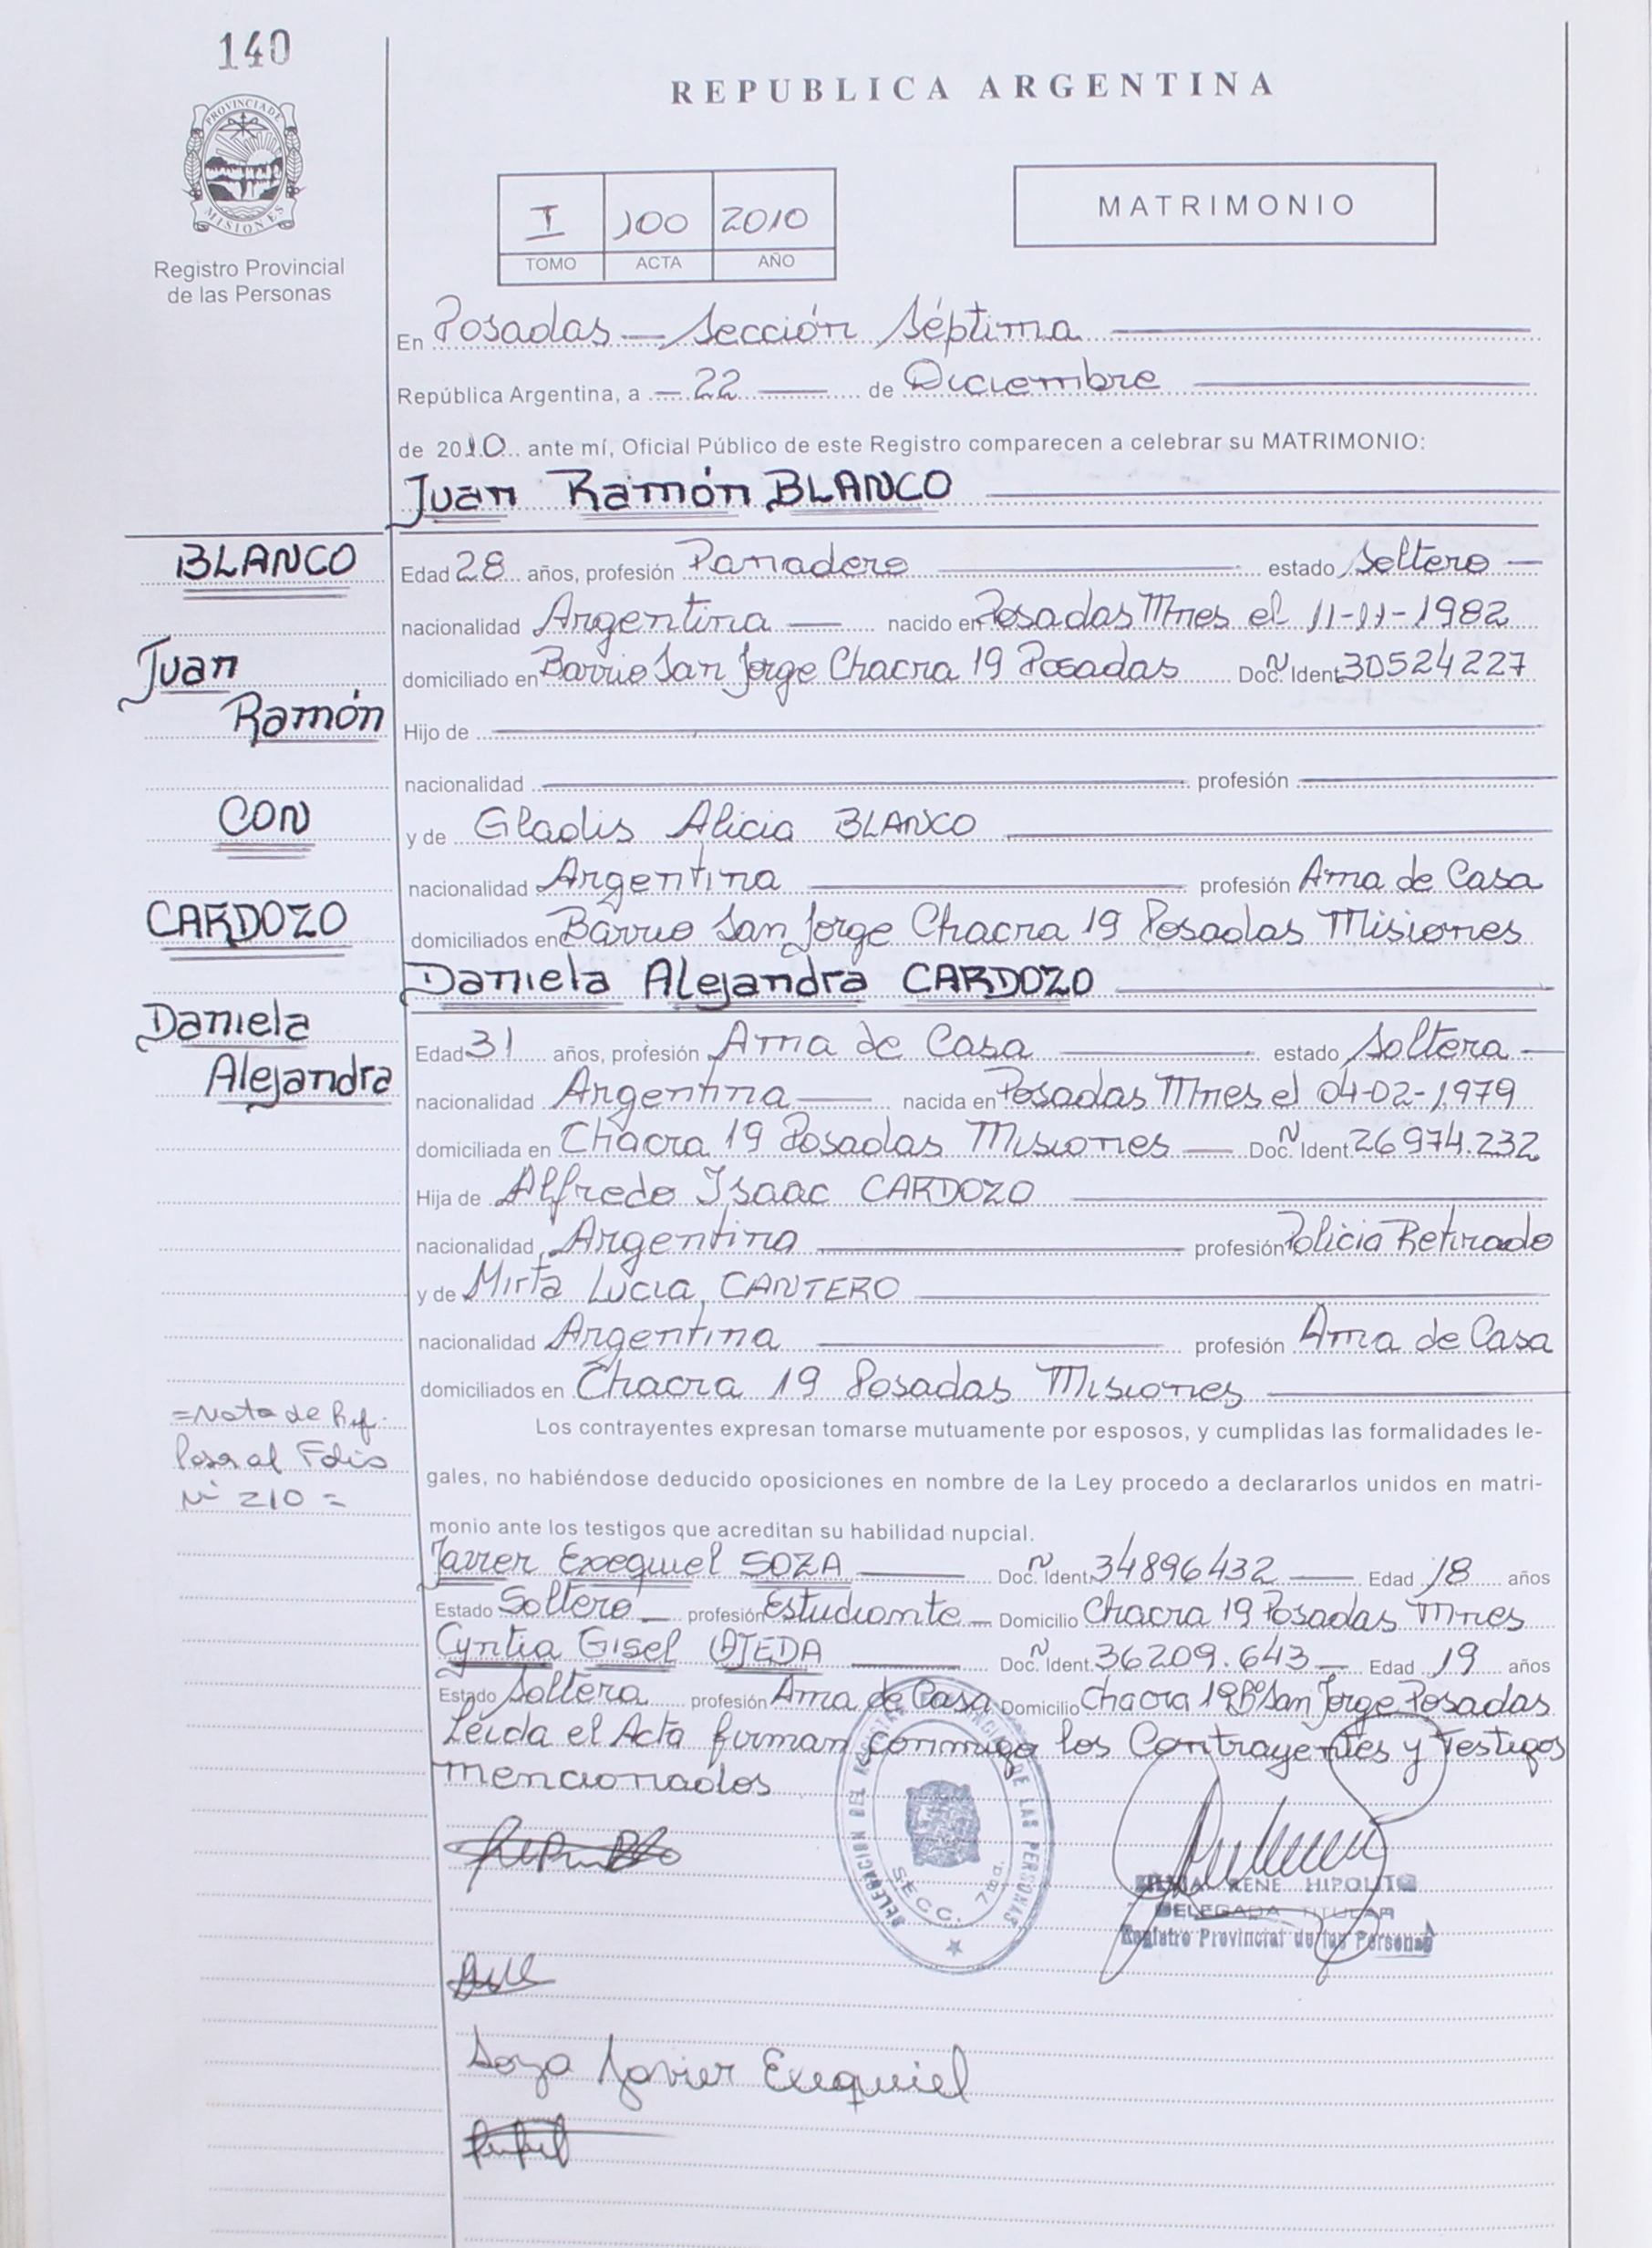 140
PROVINCIA DE
MISIONES
Registro Provincial
de las Personas
REPUBLICA ARGENTINA
I 100 2010
TOMO ACTA AÑO
MATRIMONIO
En Posadas — Sección Séptima
República Argentina, a — 22 — de Diciembre
de 2010 ante mí, Oficial Público de este Registro comparecen a celebrar su MATRIMONIO:
Juan Ramón BLANCO
BLANCO
Juan
Ramón
CON
CARDOZO
Daniela
Alejandra
Edad 28 años, profesión Panadero estado Soltero —
nacionalidad Argentina — nacido en Posadas Mnes el 11-11-1982
domiciliado en Barrio San Jorge Chacra 19 Posadas Doc. N Ident 30524227
Hijo de
nacionalidad profesión
y de Gladis Alicia BLANCO
nacionalidad Argentina profesión Ama de Casa
domiciliados en Barrio San Jorge Chacra 19 Posadas Misiones
Daniela Alejandra CARDOZO
Edad 31 años, profesión Ama de Casa estado Soltera —
nacionalidad Argentina — nacida en Posadas Mnes el 04-02-1979
domiciliada en Chacra 19 Posadas Misiones — Doc. N Ident. 26974.232
Hija de Alfredo Isaac CARDOZO
nacionalidad Argentina profesión Policia Retirado
y de Mirta Lucia CANTERO
nacionalidad Argentina profesión Ama de Casa
domiciliados en Chacra 19 Posadas Misiones
=Nota de Ref.
Pasa al Folio
Nº 210 =
Los contrayentes expresan tomarse mutuamente por esposos, y cumplidas las formalidades le-
gales, no habiéndose deducido oposiciones en nombre de la Ley procedo a declararlos unidos en matri-
monio ante los testigos que acreditan su habilidad nupcial.
Javier Exequiel SOZA — Doc. N Ident. 34896432 — Edad 18 años
Estado Soltero — profesión Estudiante — Domicilio Chacra 19 Posadas Mnes
Cyntia Gisel OJEDA — Doc. N Ident. 36209.643 — Edad 19 años
Estado Soltera profesión Ama de Casa Domicilio Chacra 19 Bº San Jorge Posadas
Leida el Acta firman conmigo los Contrayentes y Testigos
mencionados
DELEGACION DEL REGISTRO DE LAS PERSONAS
SECC. 7ma.
RENE HIPOLITO
DELEGADA TITULAR
Registro Provincial de las Personas
Soza Javier Exequiel